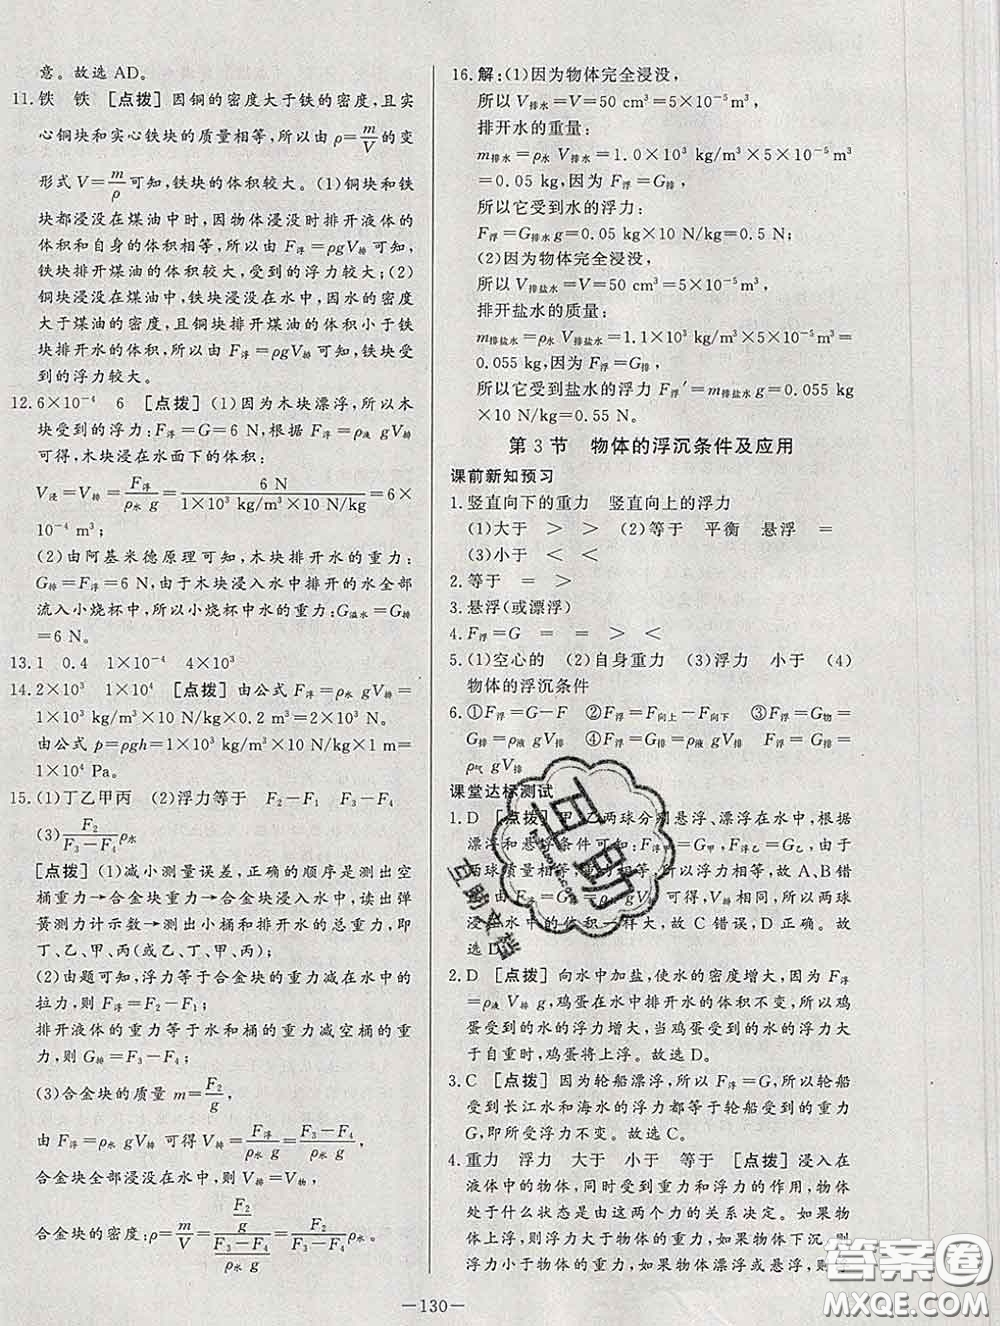 意。故选 AD。
11. 铁　铁　[点拨] 因铜的密度大于铁的密度，且实
心铜块和实心铁块的质量相等，所以由 ρ=m/V 的变
形式 V=m/ρ 可知，铁块的体积较大。(1)铜块和铁
块都浸没在煤油中时，因物体浸没时排开液体的
体积和自身的体积相等，所以由 F浮=ρgV排 可知，
铁块排开煤油的体积较大，受到的浮力较大；(2)
铜块浸没在煤油中，铁块浸没在水中，因水的密度
大于煤油的密度，且铜块排开煤油的体积小于铁
块排开水的体积，所以由 F浮=ρgV排 可知，铁块受
到的浮力较大。
12. 6×10⁻⁴　6　[点拨] (1)因为木块漂浮，所以木
块受到的浮力：F浮=G=6 N，根据 F浮=ρ液 gV排
可得，木块浸在水面下的体积：
V浸=V排=F浮/(ρ水 g)=6 N/(1×10³ kg/m³×10 N/kg)=6×
10⁻⁴ m³；
(2)由阿基米德原理可知，木块排开水的重力：
G排=F浮=6 N，由于木块浸入水中排开的水全部
流入小烧杯中，所以小烧杯中水的重力：G溢水=G排
=6 N。
13. 1　0.4　1×10⁻⁴　4×10³
14. 2×10³　1×10⁴　[点拨] 由公式 F浮=ρ水 gV排=
1×10³ kg/m³×10 N/kg×0.2 m³=2×10³ N。
由公式 p=ρgh=1×10³ kg/m³×10 N/kg×1 m=
1×10⁴ Pa。
15. (1)丁乙甲丙　(2)浮力等于　F2−F1　F3−F4
(3)F2/(F3−F4)ρ水
[点拨] (1)减小测量误差，正确的顺序是测出空
桶重力→合金块重力→合金块浸入水中，读出弹
簧测力计示数→测出小桶和排开水的总重力，即
丁、乙、甲、丙(或乙、丁、甲、丙)。
(2)由题可知，浮力等于合金块的重力减在水中的
拉力，则 F浮=F2−F1；
排开液体的重力等于水和桶的重力减空桶的重
力，则 G排=F3−F4；
(3)合金块的质量 m=F2/g，
由 F浮=ρ水 gV排 可得 V排=F浮/(ρ水 g)=(F3−F4)/(ρ水 g)，
合金块全部浸没在水中，则 V排=V物，
合金块的密度：ρ=m/V=(F2/g)/((F3−F4)/(ρ水 g))=F2/(F3−F4)ρ水。
16. 解：(1)因为物体完全浸没，
所以 V排水=V=50 cm³=5×10⁻⁵m³，
排开水的重量：
m排水=ρ水 V排水=1.0×10³ kg/m³×5×10⁻⁵m³
=0.05 kg，因为 F浮=G排，
所以它受到水的浮力：
F浮=G排水g=0.05 kg×10 N/kg=0.5 N；
(2)因为物体完全浸没，
所以 V排盐水=V=50 cm³=5×10⁻⁵m³，
排开盐水的质量：
m排盐水=ρ水 V排盐水=1.1×10³ kg/m³×5×10⁻⁵m³=
0.055 kg，因为 F浮=G排，
所以它受到盐水的浮力 F浮′=m排盐水g=0.055 kg
×10 N/kg=0.55 N。
第 3 节　物体的浮沉条件及应用
课前新知预习
1. 竖直向下的重力　竖直向上的浮力
(1)大于　＞　＞　(2)等于　平衡　悬浮　＝
(3)小于　＜　＜
2. 等于
3. 悬浮(或漂浮)
4. F浮=G　＝　＝　＞　＜
5. (1)空心的　(2)自身重力　(3)浮力　小于　(4)
物体的浮沉条件
6. ①F浮=G−F　②F浮=F向上−F向下　③F浮=G物=
G排=ρ液 gV排　④F浮=G排=ρ液 gV排　F浮=G排=
ρ气 gV排
课堂达标测试
1. D　[点拨] 甲、乙两球分别悬浮、漂浮在水中，根据
漂浮和悬浮条件可知：F浮甲=G甲，F浮乙=G乙，由于
两球质量相等，则重力相等，所以浮力相等，故 A、B错
误；由 F浮=ρ水 gV排 可知，V排相同，所以两球
浸在水中的体积一样大，故 C 错误，D 正确。故
选 D。
2. D　[点拨] 向水中加盐，使水的密度增大，因为 F浮
=ρ液 V排 g，鸡蛋在水中排开水的体积不变，所以鸡
蛋受到的水的浮力增大，当鸡蛋受到水的浮力大
于自重时，鸡蛋将上浮。故选 D。
3. C　[点拨] 因为轮船漂浮，所以 F浮=G，所以轮船
受到长江水和海水的浮力都等于轮船受到的重力
G，即所受浮力不变。故选 C。
4. 重力　浮力　大于　小于　等于　[点拨] 浸入在
液体中的物体，同时受到重力和浮力的作用，物体
处于什么状态是由这两个力的关系决定。如果物
体上浮，则浮力大于物体的重力，如果物体下沉，则
浮力小于物体的重力，如果物体悬浮或漂浮，则浮
—130—
互助
互助文档
答案圈
MXQE.COM